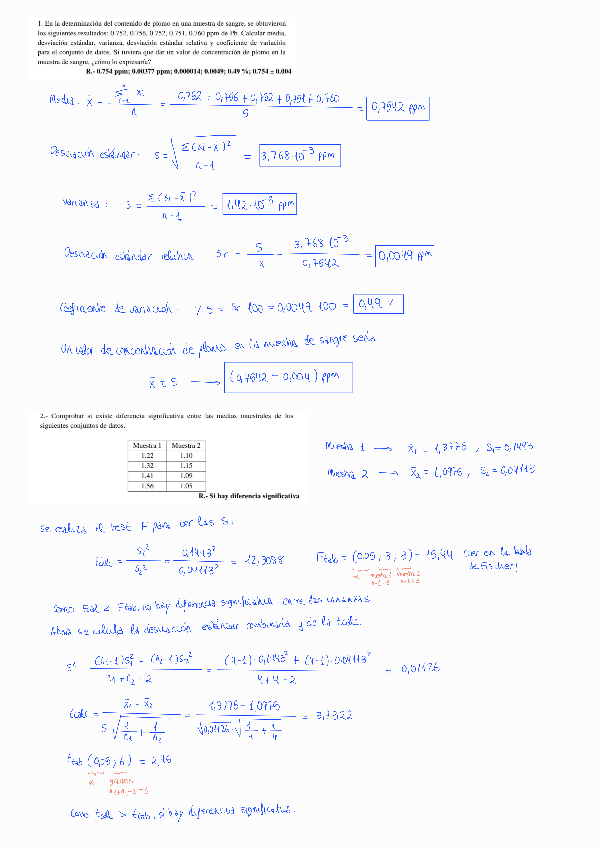 1. En la determinación del contenido de plomo en una muestra de sangre, se obtuvieron
los siguientes resultados: 0.752, 0.756, 0.752, 0.751, 0.760 ppm de Pb. Calcular media,
desviación estándar, varianza, desviación estándar relativa y coeficiente de variación
para el conjunto de datos. Si tuviera que dar un valor de concentración de plomo en la
muestra de sangre, ¿cómo lo expresaría?
R.- 0.754 ppm; 0.00377 ppm; 0.000014; 0.0049; 0.49 %; 0.754 ± 0.004
Media: x̄ = Σ xi / n = 0,752 + 0,756 + 0,752 + 0,751 + 0,760 / 5 = 0,7542 ppm
Desviación estándar: s = √ Σ(xi - x̄)² / n-1 = 3,768·10⁻³ ppm
Varianza: s = Σ(xi - x̄)² / n-1 = 1,42·10⁻⁵ ppm
Desviación estándar relativa Sr = s / x̄ = 3,768·10⁻³ / 0,7542 = 0,0049 ppm
Coeficiente de variación: % s = Sr·100 = 0,0049·100 = 0,49 %
Un valor de concentración de plomo en la muestra de sangre sería
x̄ ± s → (0,7542 ± 0,004) ppm
2.- Comprobar si existe diferencia significativa entre las medias muestrales de los
siguientes conjuntos de datos.
Muestra 1 Muestra 2
1.22 1.10
1.32 1.15
1.41 1.09
1.56 1.05
R.- Si hay diferencia significativa
Muestra 1 → x̄₁ = 1,3775 , S₁ = 0,1443
Muestra 2 → x̄₂ = 1,0975 , S₂ = 0,04113
Se realiza el test F para ver las S:
Fcal = S₁² / S₂² = 0,1443² / 0,04113² = 12,3088
Ftab = (0,05, 3, 3) = 15,44 (ver en la tabla
de Fisher)
α muestra 1 muestra 2
n-1=3 n-1=3
Como Fcal < Ftab, no hay diferencia significativa entre las varianzas
Ahora se calcula la desviación estándar combinada y de la tcalc.
S² = (n₁-1)S₁² + (n₂-1)S₂² / n₁+n₂-2 = (4-1)·0,1443² + (4-1)·0,04113² / 4+4-2 = 0,01126
tcalc = x̄₁ - x̄₂ / S √ 1/n₁ + 1/n₂ = 1,3775 - 1,0975 / √0,01126 · √ 1/4 + 1/4 = 3,7322
ttab (0,05, 6) = 2,45
α grados
n₁+n₂-2=6
Como tcal > ttab, si hay diferencia significativa.